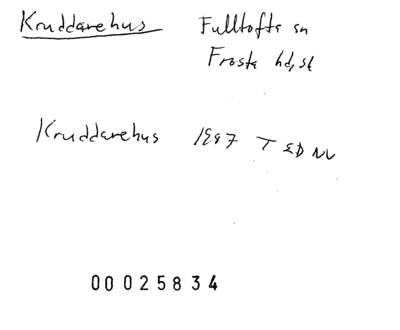 Kruddarehus Fulltofta sn
Frosta hd, sk
Kruddarehus 1897 T ED NV
00025834